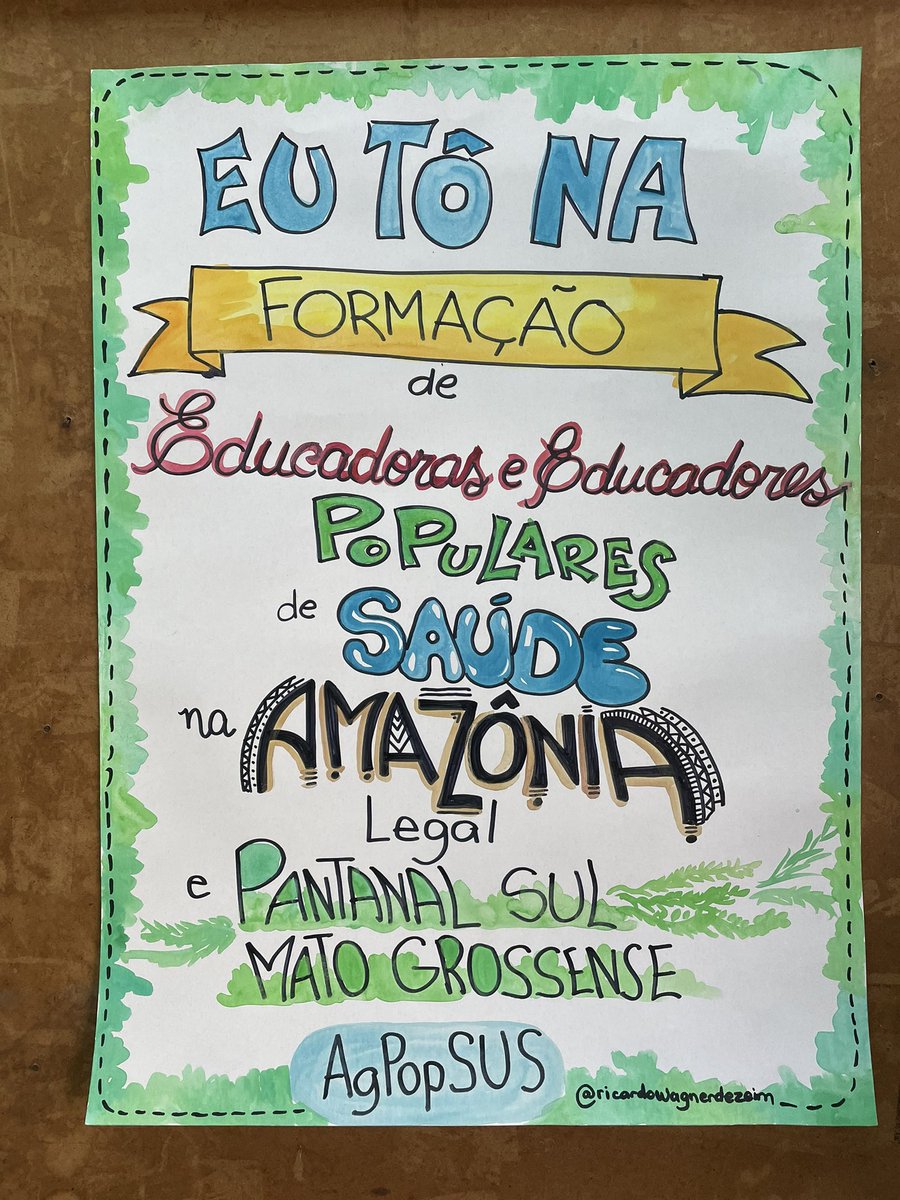 EU TÔ NA
FORMAÇÃO
de
Educadoras e Educadores
POPULARES
de SAÚDE
na AMAZÔNIA
Legal
e PANTANAL SUL
MATO GROSSENSE
AgPopSUS
@ricardowagnerdezoim